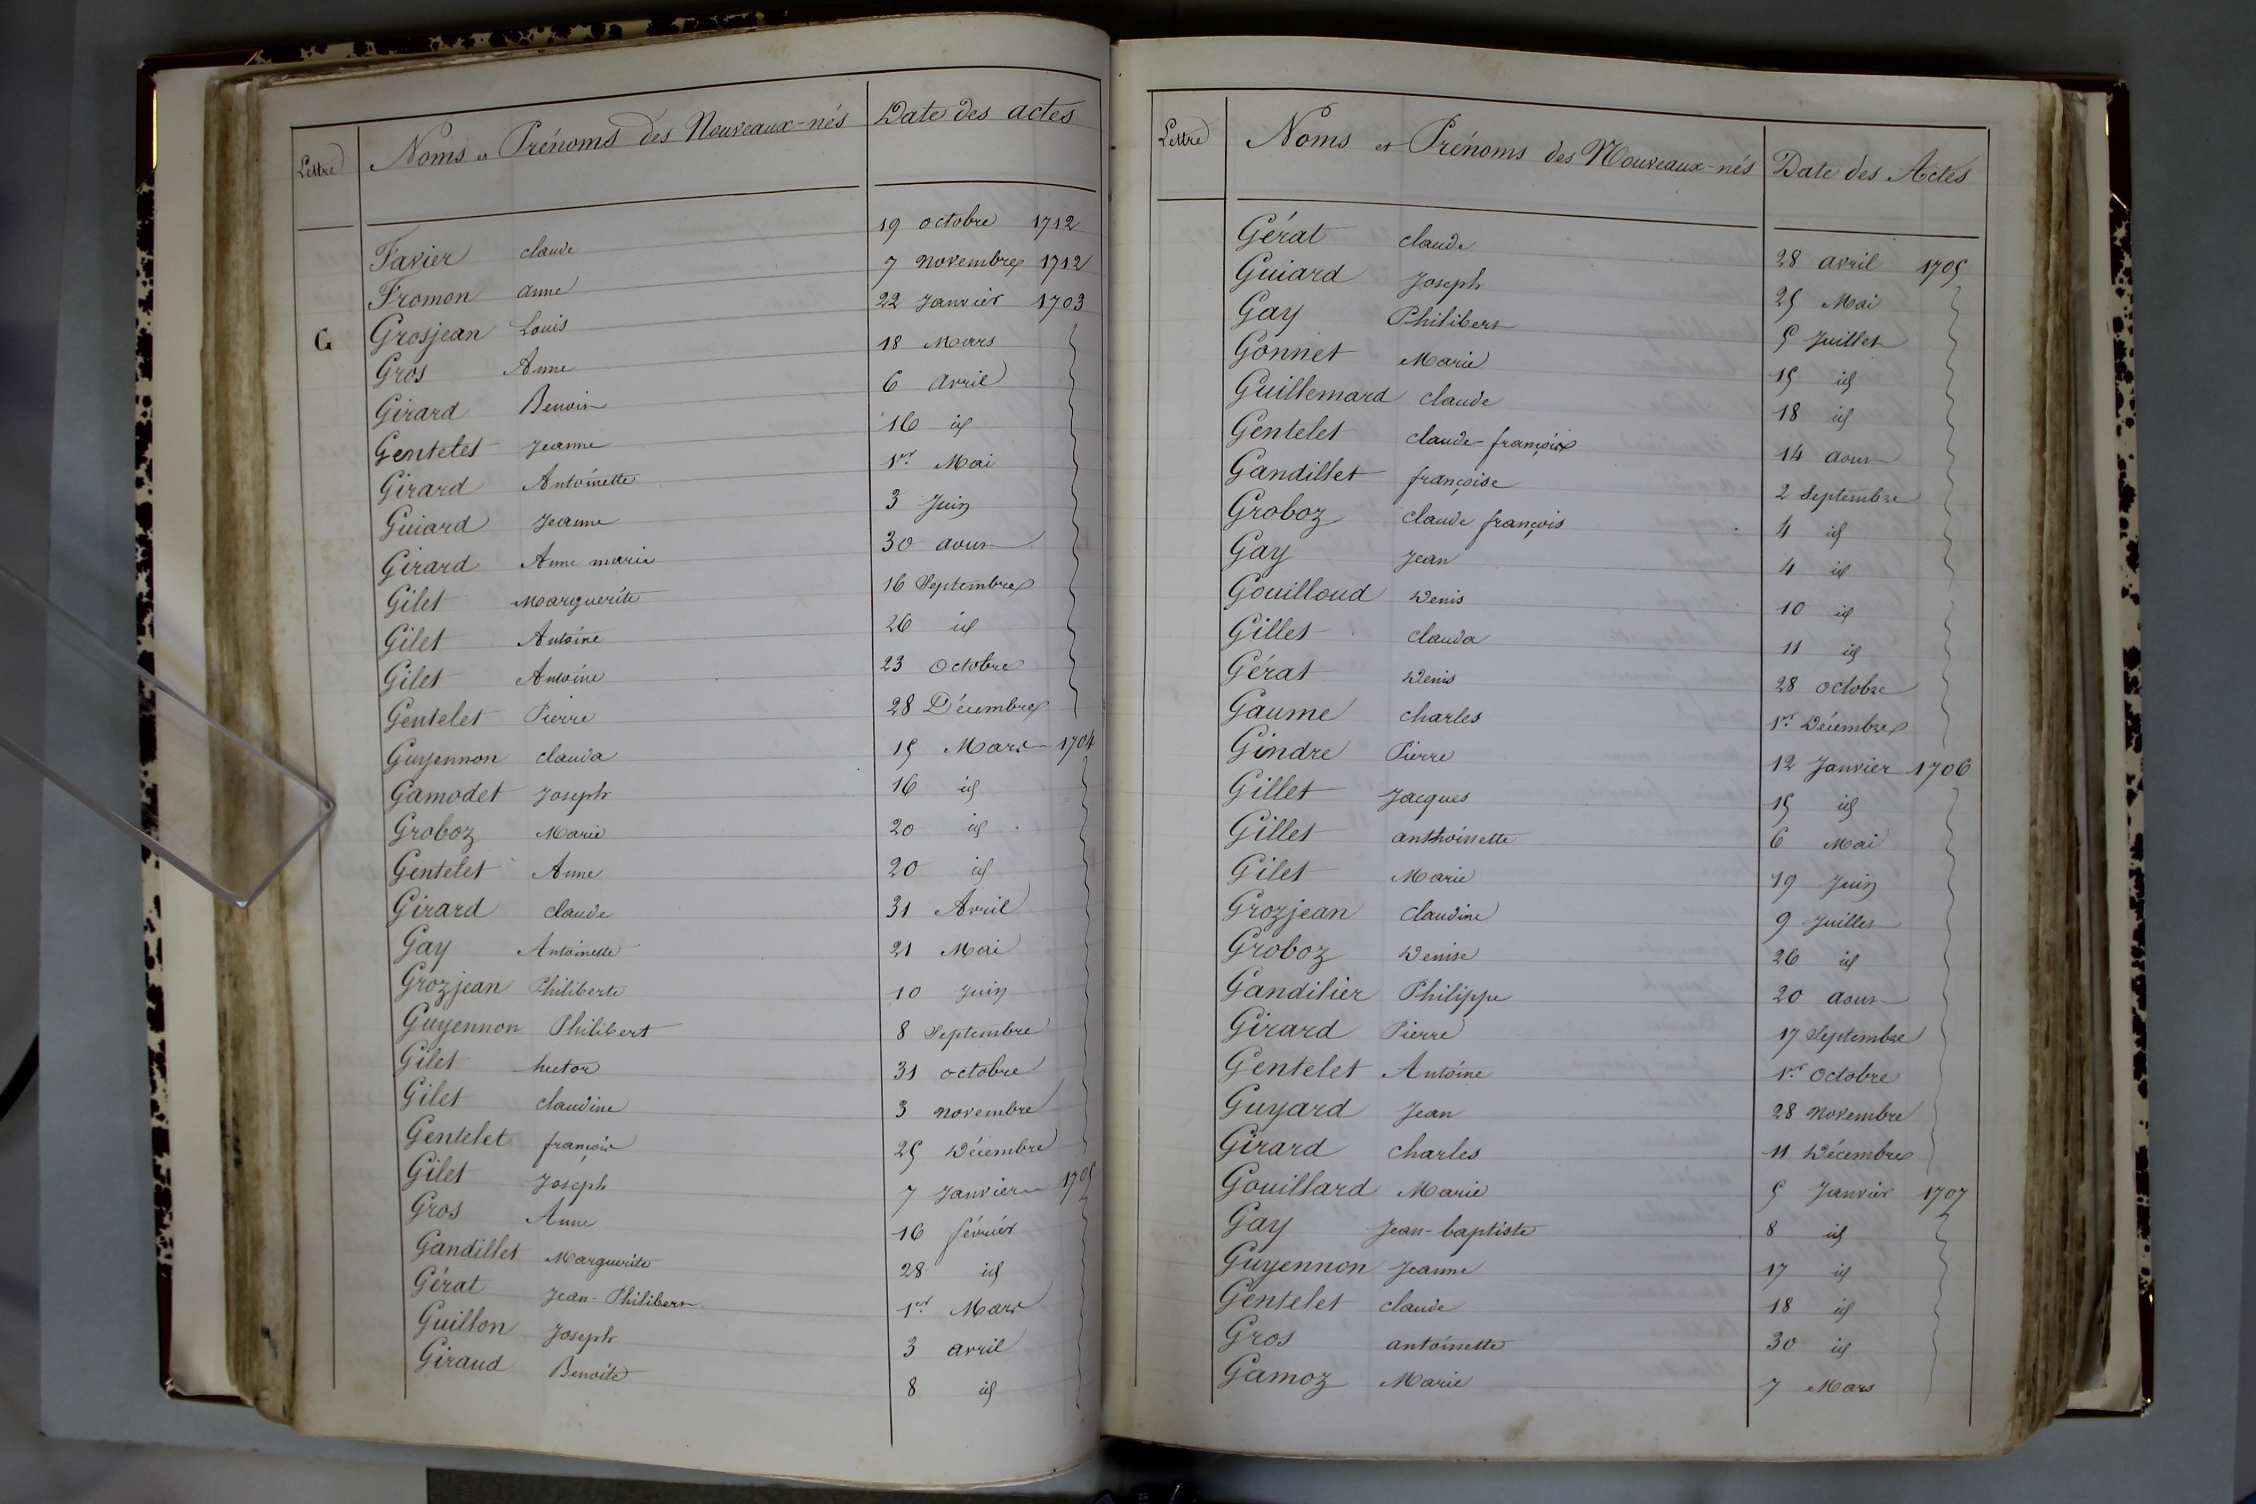 Lettre Noms et Prénoms des Nouveaux-nés Date des actes
Favier claude 19 octobre 1712
Fromon anne 7 novembre 1712
G Grosjean Louis 22 Janvier 1703
Gros Anne 18 Mars
Girard Benoit 6 avril
Gentelet Jeanne 16 id
Girard Antoinette 1er Mai
Guiard Jeanne 3 Juin
Girard Anne marie 30 aout
Gilet Marguerite 16 Septembre
Gilet Antoine 26 id
Gilet Antoine 23 Octobre
Gentelet Pierre 28 Décembre
Guyennon clauda 15 Mars 1704
Gamodet Joseph 16 id
Groboz Marie 20 id
Gentelet Anne 20 id
Girard claude 31 Avril
Gay Antoinette 21 Mai
Grozjean Philiberte 10 Juin
Guyennon Philibert 8 Septembre
Gilet hector 31 octobre
Gilet claudine 3 novembre
Gentelet françois 25 Décembre
Gilet Joseph 7 Janvier 1705
Gros Anne 16 février
Gandillet Marguerite 28 id
Gérat Jean-Philibert 1er Mars
Guillon Joseph 3 avril
Giraud Benoite 8 id
Lettre Noms et Prénoms des Nouveaux-nés Date des Actes
Gérat claude 28 avril 1705
Guiard Joseph 25 Mai
Gay Philibert 5 Juillet
Gonnet Marie 15 id
Guillemard claude 18 id
Gentelet claude-françois 14 aout
Gandillet françoise 2 Septembre
Groboz claude françois 4 id
Gay Jean 4 id
Gouilloud Denis 10 id
Gillet clauda 11 id
Gérat Denis 28 octobre
Gaume charles 1er Décembre
Gindre Pierre 12 Janvier 1706
Gillet Jacques 15 id
Gillet anthoinette 6 Mai
Gilet Marie 19 Juin
Grozjean claudine 9 Juillet
Groboz Denise 26 id
Gandilier Philippe 20 aout
Girard Pierre 17 Septembre
Gentelet Antoine 1er Octobre
Guyard Jean 28 novembre
Girard charles 11 Décembre
Gouillard Marie 5 Janvier 1707
Gay Jean-baptiste 8 id
Guyennon Jeanne 17 id
Gentelet claude 18 id
Gros antoinette 30 id
Gamoz Marie 7 Mars